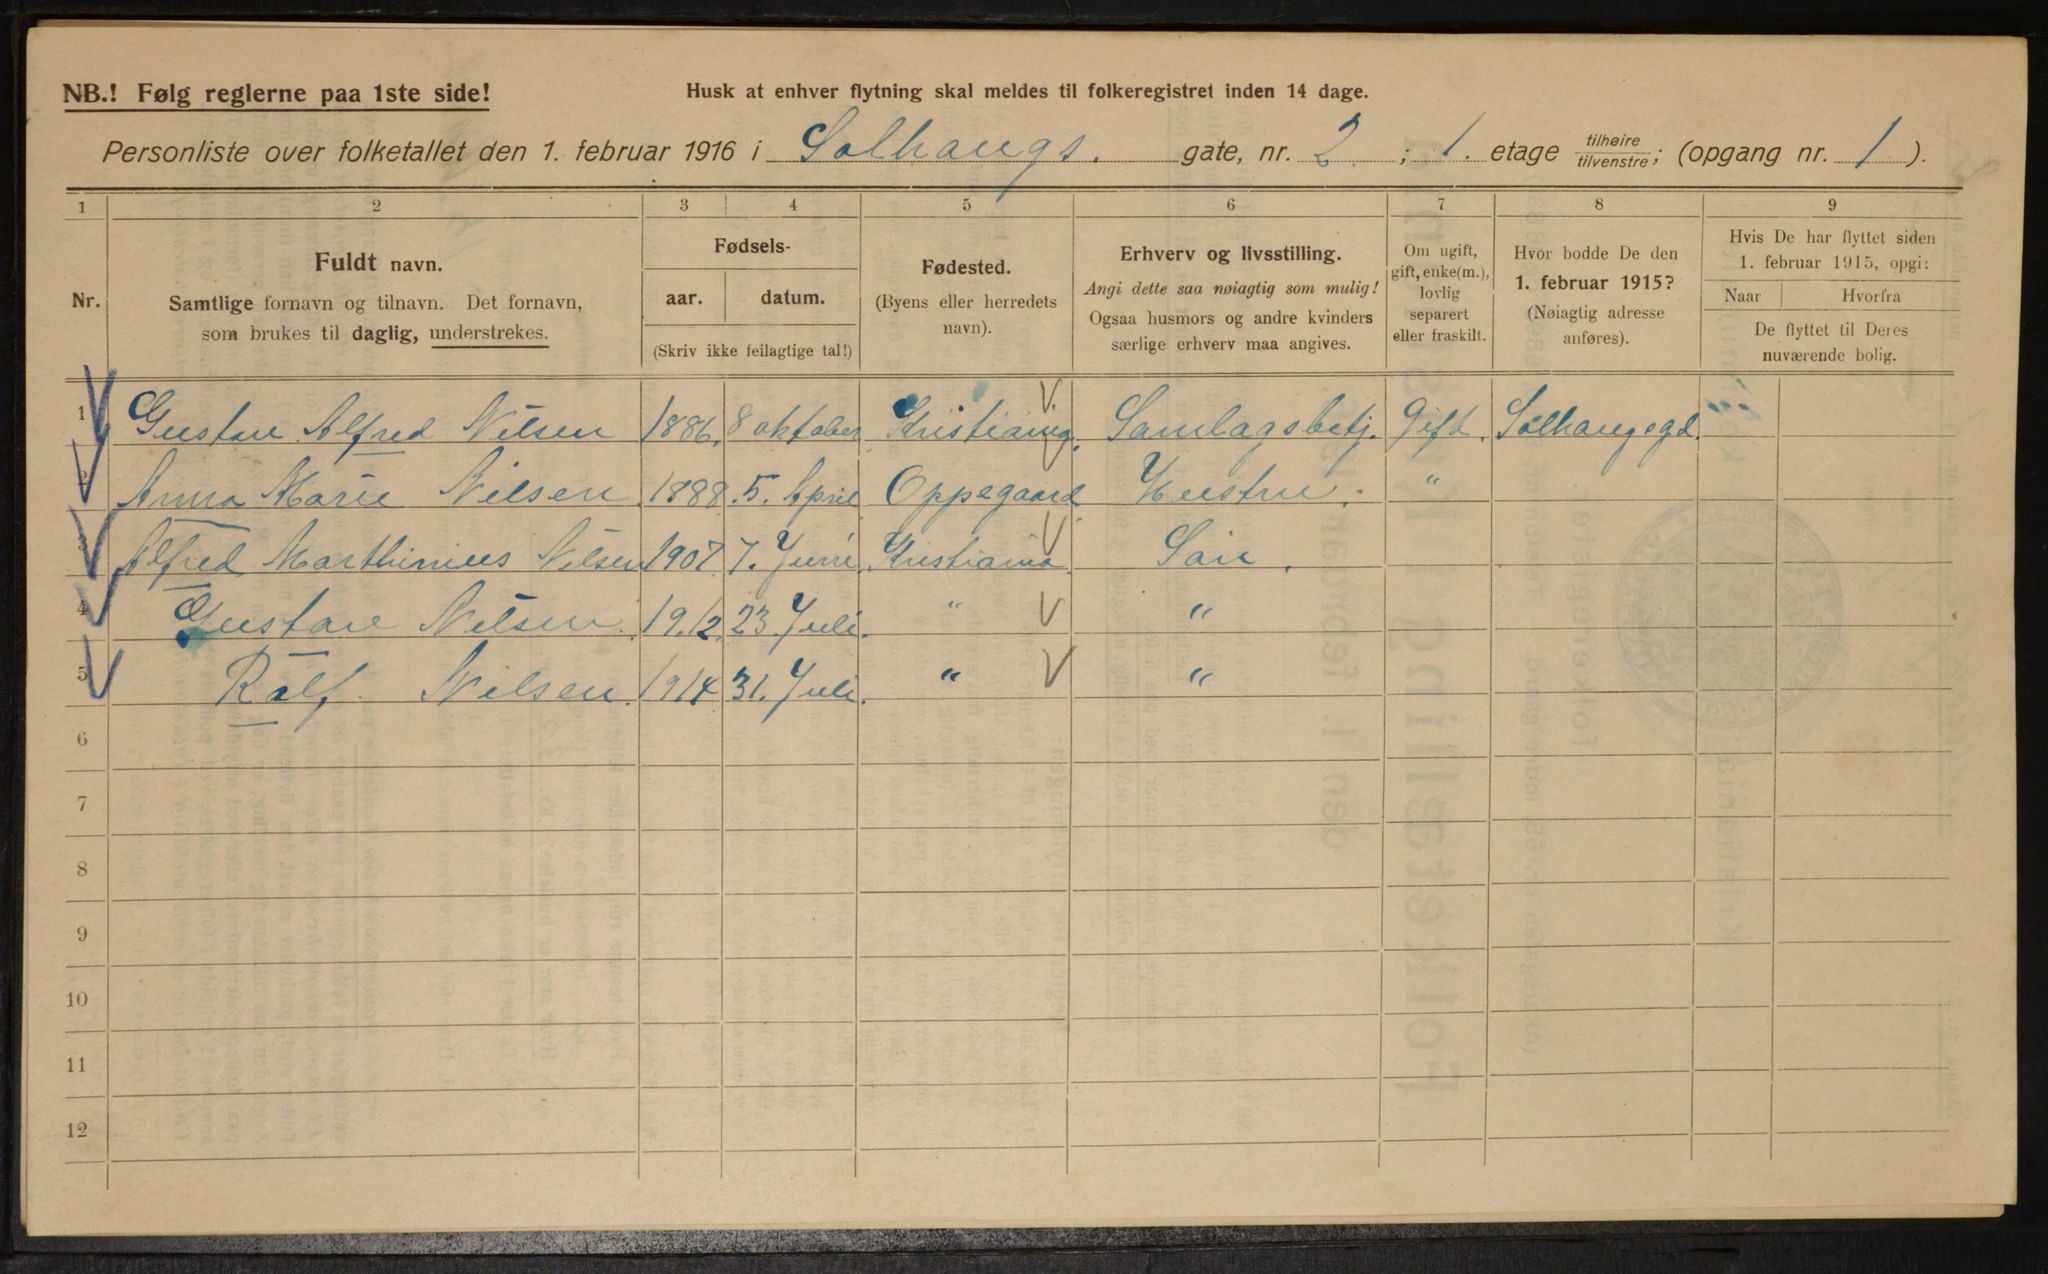 NB.! Følg reglerne paa 1ste side!
Husk at enhver flytning skal meldes til folkeregistret inden 14 dage.
Personliste over folketallet den 1. februar 1916 i Solhaugs. gate, nr. 2 ; 1. etage tilhøire tilvenstre; (opgang nr. 1 ).
1 2 3 4 5 6 7 8 9
Nr.
Fuldt navn.
Samtlige fornavn og tilnavn. Det fornavn,
som brukes til daglig, understrekes.
Fødsels-
aar. datum.
(Skriv ikke feilagtige tal!)
Fødested.
(Byens eller herredets
navn).
Erhverv og livsstilling.
Angi dette saa nøiagtig som mulig!
Ogsaa husmors og andre kvinders
særlige erhverv maa angives.
Om ugift,
gift, enke(m.),
lovlig
separert
eller fraskilt.
Hvor bodde De den
1. februar 1915?
(Nøiagtig adresse
anføres).
Hvis De har flyttet siden
1. februar 1915, opgi:
Naar Hvorfra
De flyttet til Deres
nuværende bolig.
1 Gustav Alfred Nilsen 1886. 8 oktober Kristiania. Samlagsbetj. Gift. Solhaugsgd.
2 Anna Marie Nilsen 1888. 5. April Oppegaard Hustru. "
3 Alfred Marthinius Nilsen 1907. 7. Juni Kristiania. Søn.
4 Gustav Nilsen. 1912. 23. Juli. " "
5 Ralf. Nilsen. 1914 31. Juli. " "
6
7
8
9
10
11
12